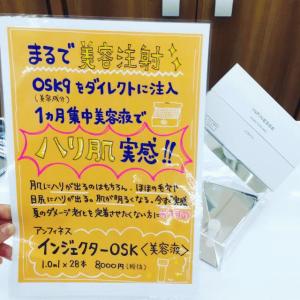 まるで美容注射
OSK9をダイレクトに注入
(美容成分)
1ヵ月集中美容液で
ハリ肌実感!!
肌にハリが出るのはもちろん、ほほの毛穴や
目尻にハリが出る。肌が明るくなる。今すぐ実感
夏のダメージ老化を定着させたくない方に
アンフィネス
インジェクターOSK〈美容液〉
1.0ml×28本 8000円(税抜)